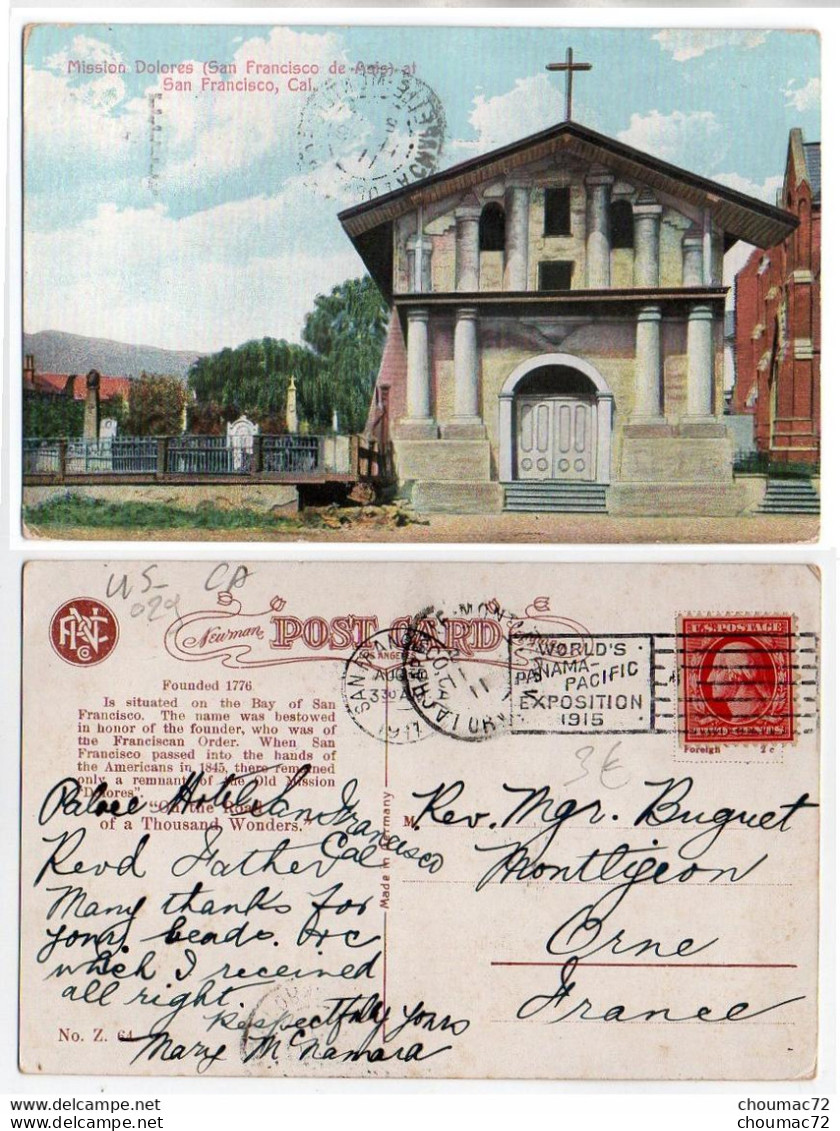 Mission Dolores (San Francisco de Asis) at
San Francisco, Cal.
US CA
029
Newman
POST CARD
LOS ANGELES
Founded 1776
Is situated on the Bay of San
Francisco. The name was bestowed
in honor of the founder, who was of
the Franciscan Order. When San
Francisco passed into the hands of
the Americans in 1845, there remained
only a remnant of the Old Mission
"Dolores".
"On the Road
of a Thousand Wonders."
Palace Hotel San Francisco
Cal
Revd Father
Many thanks for
your beads. etc
which I received
all right.
Respectfully yours
Mary McNamara
No. Z. 64
Made in Germany
AUG
330 A
1911
WORLD'S
PANAMA-
PACIFIC
EXPOSITION
1915
U.S. POSTAGE
TWO CENTS
Foreign 2c
3€
M
Rev. Mgr. Buguet
Montligeon
Orne
France
choumac72
choumac72
www.delcampe.net
www.delcampe.net